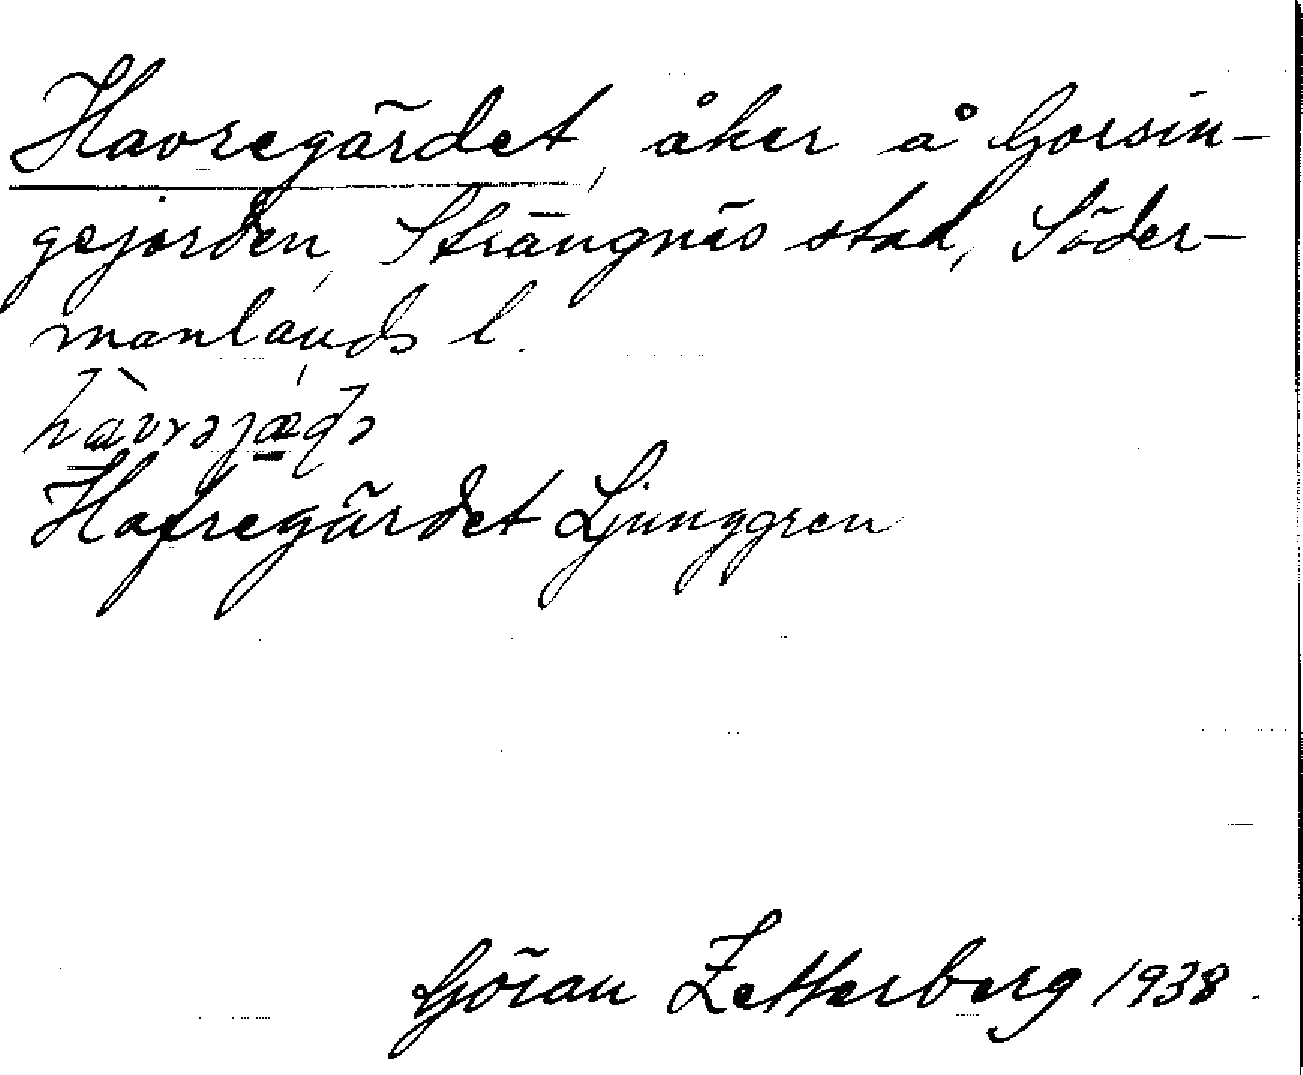 Havregärdet, åker å Gorsin-
gejorden, Strängnäs stad, Söder-
manlands l.
Hafregärdet Ljunggren
Göran Zetterberg 1938.